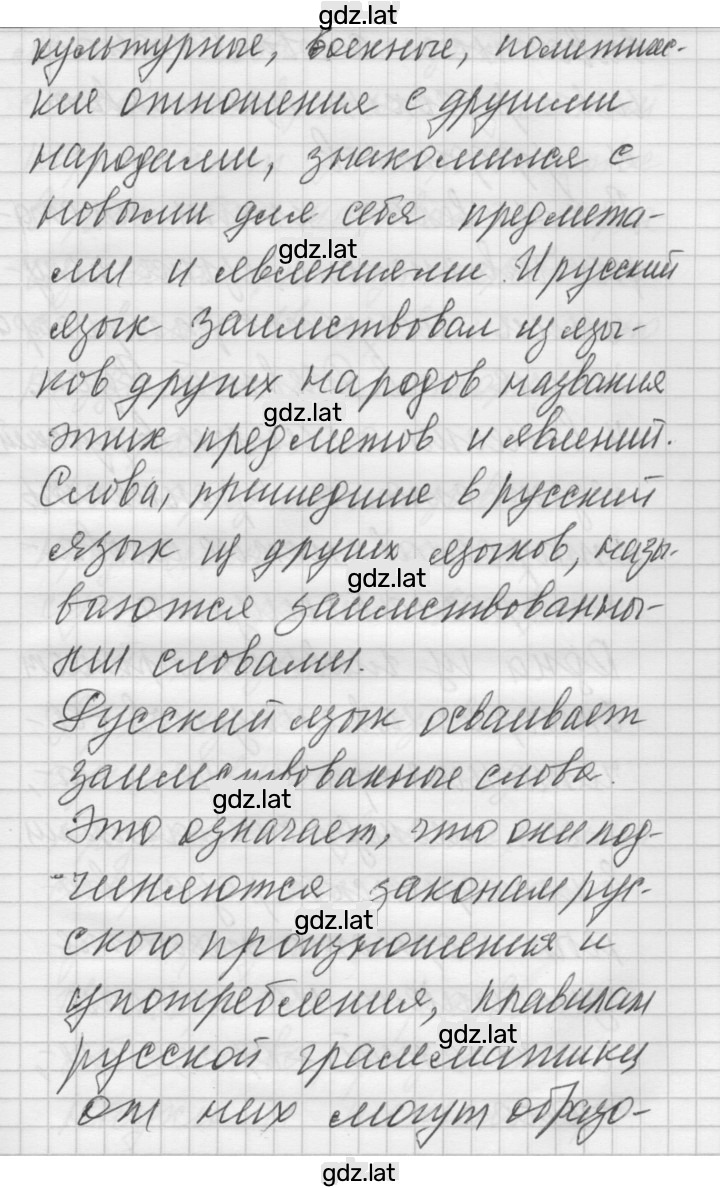 gdz.lat
культурные, военные, политичес-
кие отношения с другими
народами, знакомился с
новыми для себя предмета-
gdz.lat
ми и явлениями. И русский
язык заимствовал из язы-
ков других народов названия
gdz.lat
этих предметов и явлений.
Слова, пришедшие в русский
язык из других языков, назы-
gdz.lat
ваются заимствованны-
ми словами.
Русский язык осваивает
заимствованные слова.
gdz.lat
Это означает, что они под-
чиняются законам рус-
gdz.lat
ского произношения и
употребления, правилам
gdz.lat
русской грамматики
от них могут образо-
gdz.lat